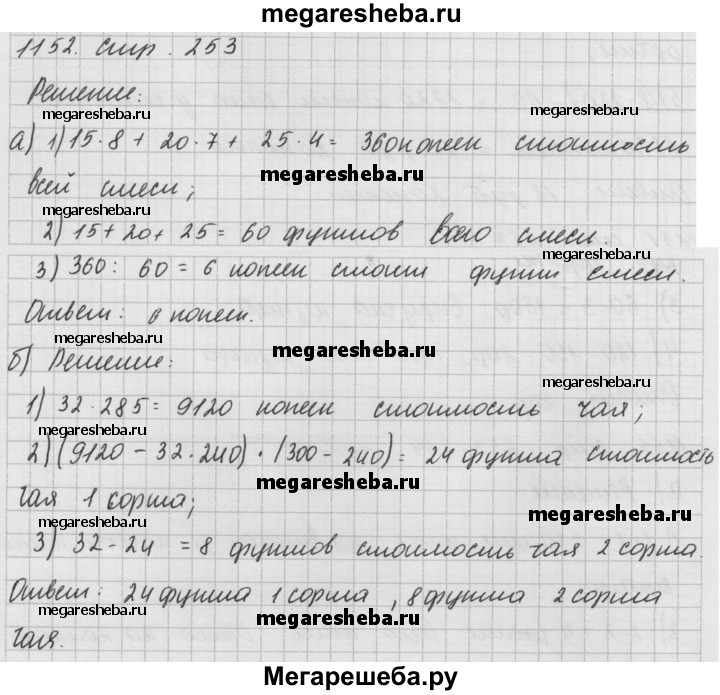 megaresheba.ru
1152. стр. 253
Решение:
megaresheba.ru
а) 1) 15·8 + 20·7 + 25·4 = 360 копеек стоимость
megaresheba.ru
megaresheba.ru
всей смеси;
megaresheba.ru
2) 15 + 20 + 25 = 60 фунтов всего смеси.
megaresheba.ru
3) 360 : 60 = 6 копеек стоит фунт смеси.
Ответ: 6 копеек.
megaresheba.ru
megaresheba.ru
б) Решение:
megaresheba.ru
1) 32·285 = 9120 копеек стоимость чая;
megaresheba.ru
2) (9120 - 32·240) · (300 - 240) = 24 фунта стоимость
megaresheba.ru
чая 1 сорта;
megaresheba.ru
megaresheba.ru
3) 32 - 24 = 8 фунтов стоимость чая 2 сорта.
Ответ: 24 фунта 1 сорта, 8 фунта 2 сорта
megaresheba.ru
megaresheba.ru
megaresheba.ru
чая.
Мегарешеба.ру